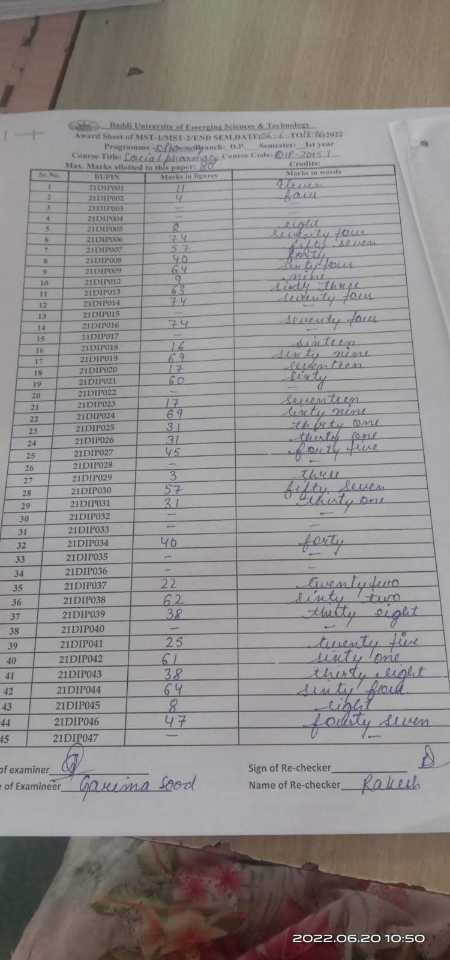 Baddi University of Emerging Sciences & Technology
Award Sheet of MST-1/MST-2/END SEM,DATE TO 2022
Programme Branch: D.P. Semester: 1st year
Course Title: Social pharmacy Course Code:
Max. Marks allotted to this paper: 80 Credits:
Sr. No. BUPIN Marks in figures Marks in words
1 21DIP001 11 Eleven
2 21DIP002 4 four
3 21DIP003 —
4 21DIP004 —
5 21DIP005 8 eight
6 21DIP006 74 seventy four
7 21DIP007 57 fifty seven
8 21DIP008 40 forty
9 21DIP009 64 sixty four
10 21DIP012 9 nine
11 21DIP013 63 sixty three
12 21DIP014 74 seventy four
13 21DIP015 —
14 21DIP016 74 seventy four
15 21DIP017 — —
16 21DIP018 16 sixteen
17 21DIP019 69 sixty nine
18 21DIP020 17 seventeen
19 21DIP021 60 sixty
20 21DIP022 — —
21 21DIP023 17 seventeen
22 21DIP024 69 sixty nine
23 21DIP025 31 thirty one
24 21DIP026 31 thirty one
25 21DIP027 45 fourty five
26 21DIP028 — —
27 21DIP029 3 three
28 21DIP030 57 fifty seven
29 21DIP031 31 thirty one
30 21DIP032 — —
31 21DIP033 — —
32 21DIP034 40 forty
33 21DIP035 — —
34 21DIP036 — —
35 21DIP037 22 twenty two
36 21DIP038 62 sixty two
37 21DIP039 38 thirty eight
38 21DIP040 — —
39 21DIP041 25 twenty five
40 21DIP042 61 sixty one
41 21DIP043 38 thirty eight
42 21DIP044 64 sixty four
43 21DIP045 8 eight
44 21DIP046 47 fourty seven
45 21DIP047 — —
of examiner Sign of Re-checker
of Examineer Garima Sood Name of Re-checker Rakesh
2022.06.20 10:50